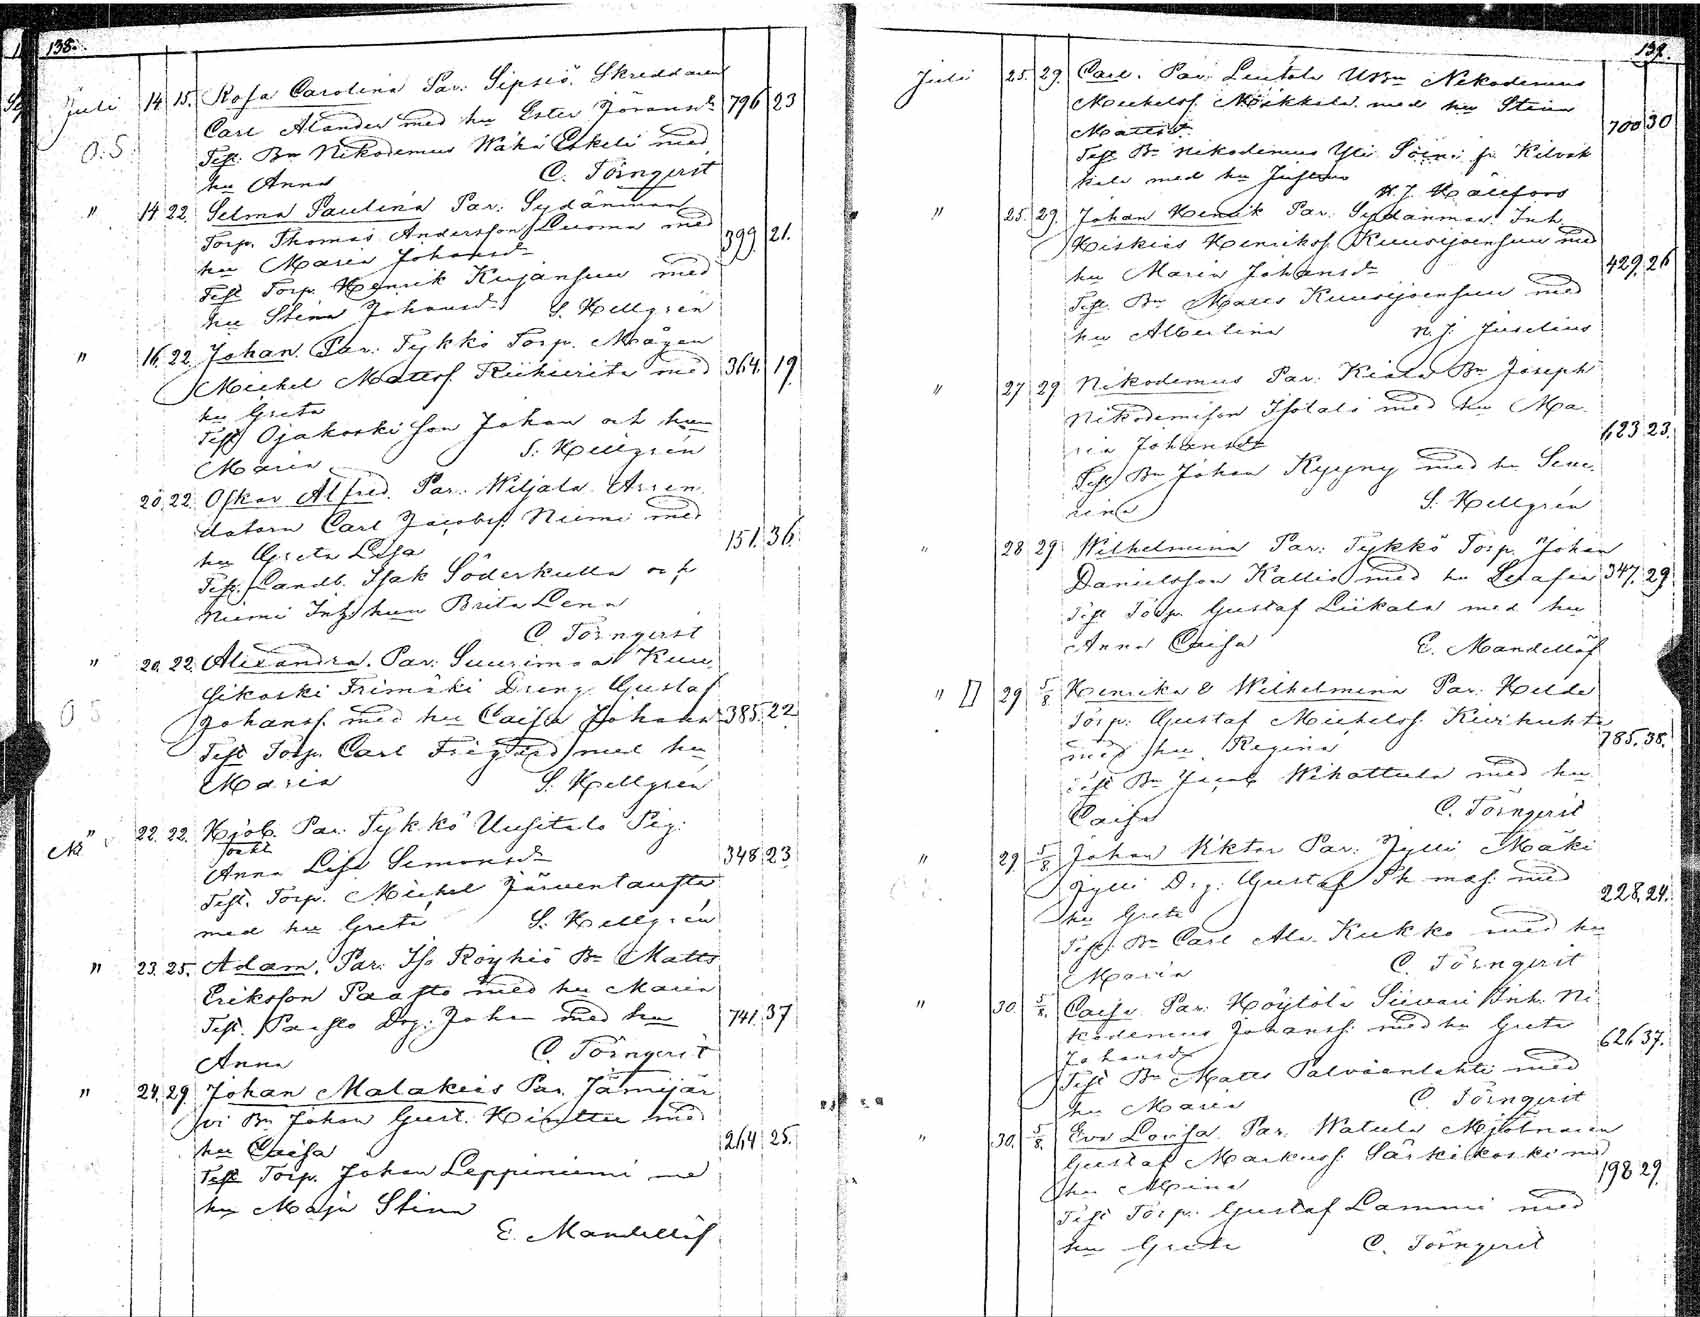 138.
Juli 14 15. Rosa Carolina Par: Sipsiö. Skreddaren
Carl Alander med hu Ester Jöransdr 796 23
0.5. Test. Bn Nikodemus Wähä Eskeli med
hu Anna C. Törnqvist
" 14 22. Selma Paulina Par: Sydänmaa
Torp. Thomas Andersson Luoma med 399 21.
hu Maria Johansdr
Test Torp. Henrik Kujansuu med
hu Stina Johansdr S. Hellgrén
" 16. 22. Johan. Par: Tykkö Torp. Mågen
Michel Mattss. Riihiriita med 364. 19
hu Greta
Test Ojakoski son Johan och hu
Maria S. Hellgrén
20 22. Oskar Alfred. Par: Wiljala Arren
datorn Carl Jacobss. Niemi med
hu Greta Lisa 151. 36.
Test. Landb. Isak Söderkulla och
Niemi Inh. hu Brita Lena
C. Törnqvist
" 20. 22. Alexandra. Par: Suurimaa Kuu
sikoski Dreng. Gustaf
0 5 Johanss. med hu Caisa Johans 385. 22
Test Torp. Carl med hu
Maria S. Hellgrén
" 22. 22. Par: Tykkö Uusitalo Pig:
Anna Lisa Simonsdr 348 23
Test. Torp. Michel Järventausta
med hu Greta S. Hellgrén
" 23. 25. Adam. Par: Iso Röyhiö Bn Matts
Eriksson Paasto med hu Maria
Test. Paasto Drg: Johan med hu 741. 37
Anna C. Törnqvist
" 24. 29. Johan Malakias Par. Jämijär
vi Bn Johan Gust. Hinttu med
hu Caisa 264 25.
Test Torp. Johan Leppiniemi me
hu Maja Stina
E. Mandellöf
139.
Juli 25. 29. Carl. Par: Leutola Nikodemus
Michelss. Mikkola med hu Stina
Mattsdr 700 30
Test Bn Nikodemus Yli Sorni fr. Kilvak
kala med hu Justina
H. J. Hällfors
" 25. 29. Johan Henrik Par: Sydänmaa Inh.
Hiskias Henrikss. Kuusijoensuu med
hu Maria Johansdr 429. 26
Test. Bn Matts Kuusijoensuu med
hu Albertina N. J. Juselius
" 27 29 Nikodemus Par: Kiala Bn Joseph
Nikodemisson Isotalo med hu Ma
ria Johansdr 623 23.
Test Bn Johan Kyyny med hu Seve
rina S. Hellgrén
" 28 29 Wilhelmina Par: Tykkö Torp. Johan
Danielsson Kallio med hu Serafia 347. 29
Test Torp. Gustaf Liikala med hu
Anna Caisa E. Mandellöf
" 29 5/8. Henrika & Wilhelmina Par: Kelde
Torp: Gustaf Michelss. Kivihuhta
med hu Regina 785. 38.
Test Bn Jacob Wihattula med hu
Caisa C. Törnqvist
" 29. 5/8. Johan Viktor Par: Jylli Mäki
Jylli Drg: Gustaf med
hu Greta 228. 24.
Test. Bn Carl Ala Kukko med hu
Maria C. Törnqvist
" 30. 5/8. Caisa Par: Höytölä Siivari Inh. Ni
kodemus Johanss. med hu Greta
Johansdr 626 37.
Test Bn Matts Palvianlahti med
hu Maria C. Törnqvist
" 30. 5/8. Eva Lovisa Par. Watula Mjölnaren
Gustaf Markuss. Särkikoski md
hu Mina 198 29.
Test Torp. Gustaf Lammi med
hu Greta C. Törnqvist